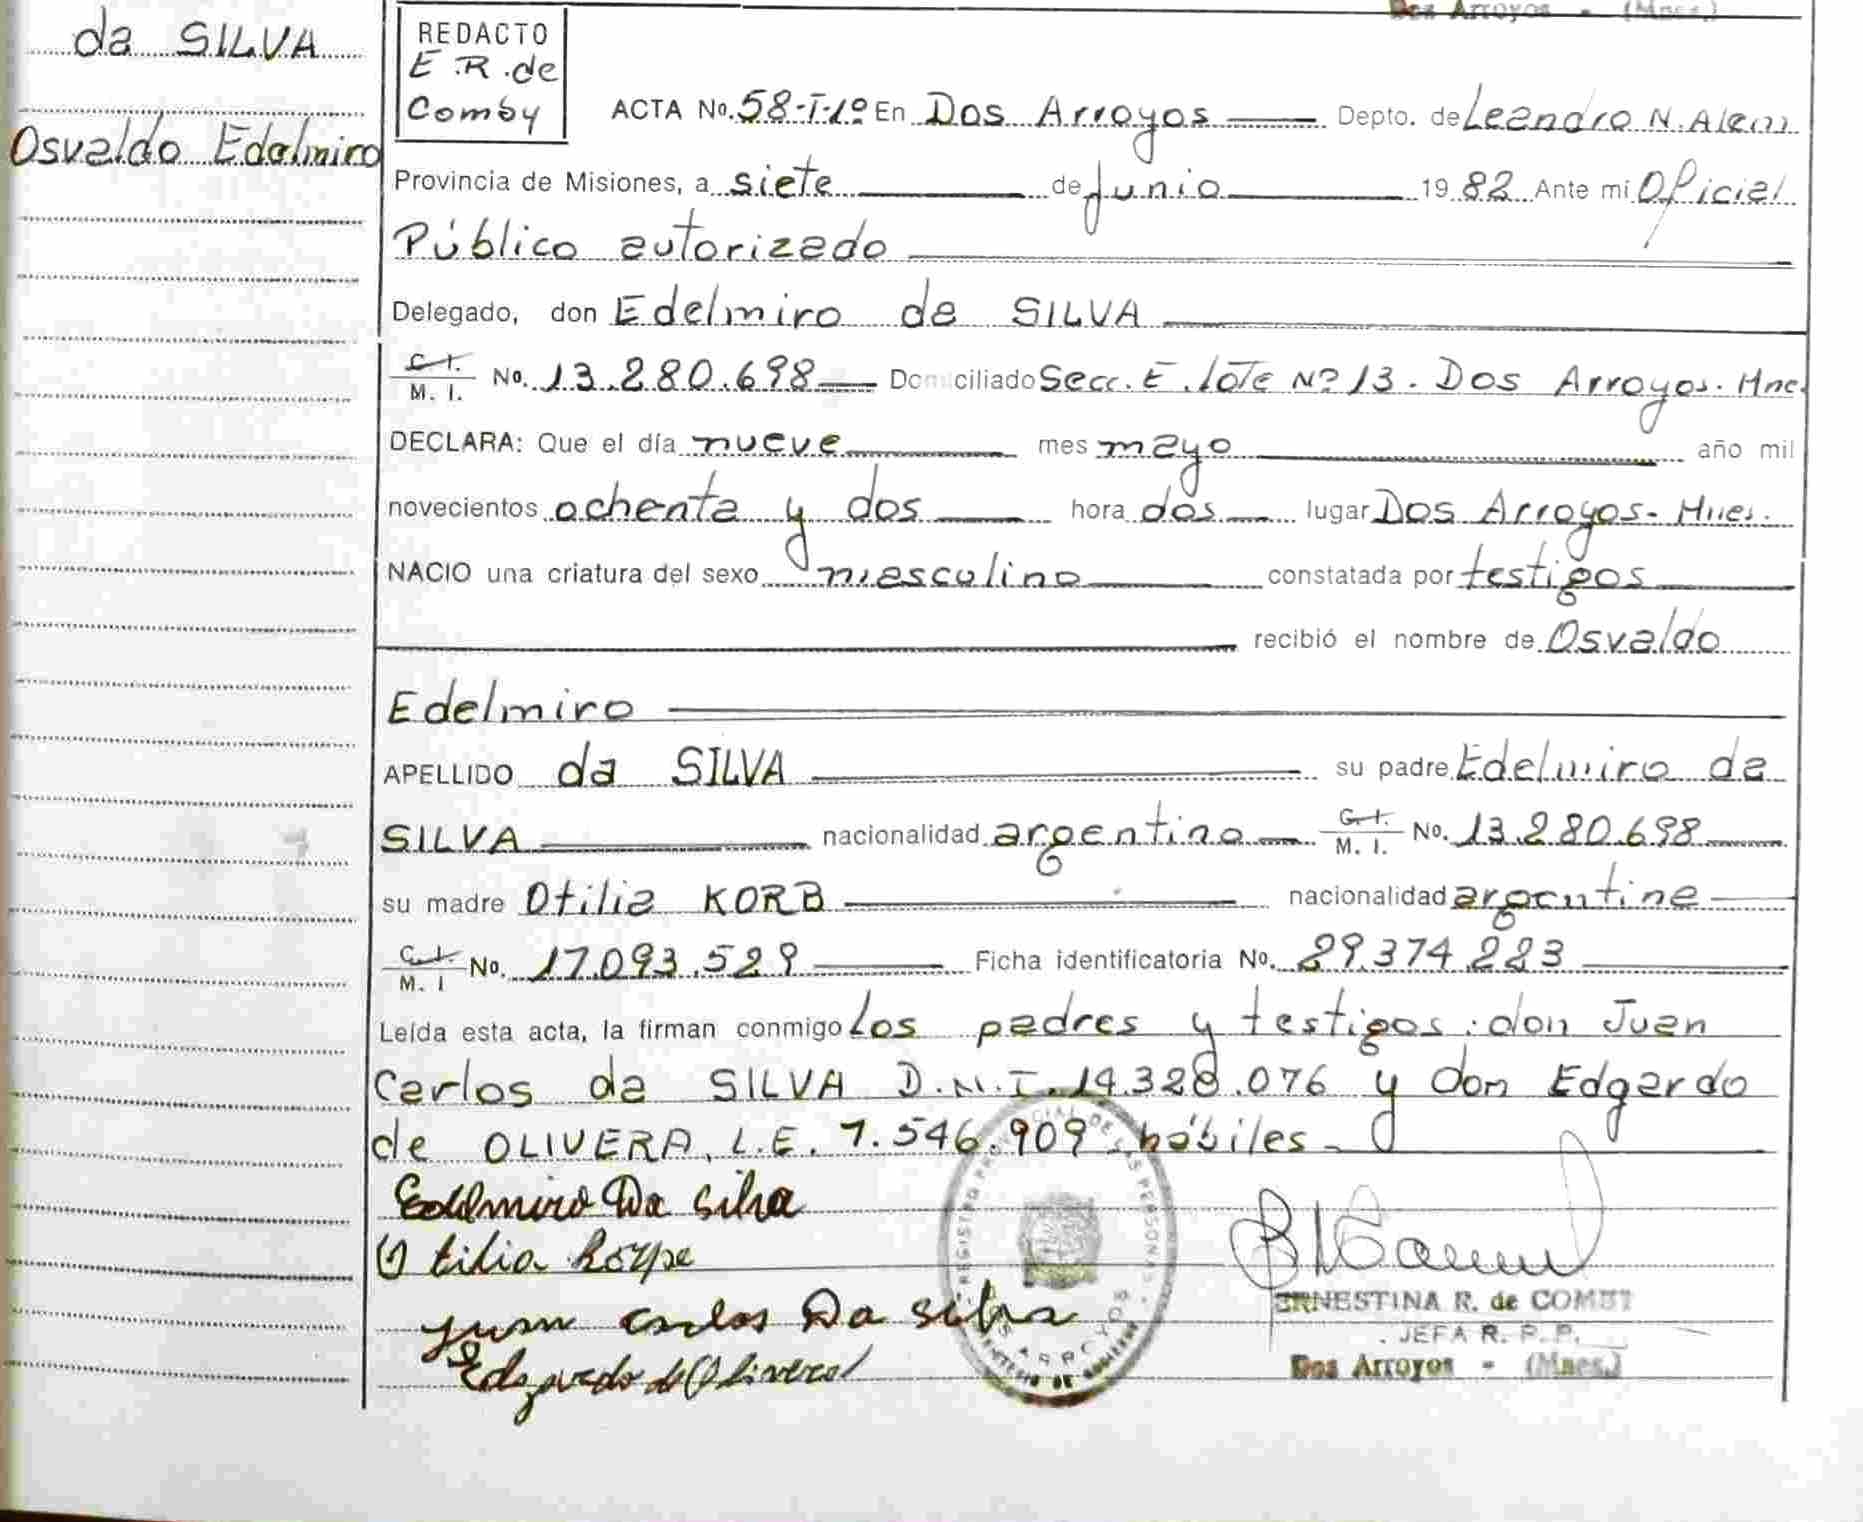 Dos Arroyos - (Mnes.)
da SILVA
Osvaldo Edelmiro
REDACTO
E.R. de
Comby
ACTA No. 58-T-1º En Dos Arroyos Depto. de Leandro N. Alem
Provincia de Misiones, a siete de junio 1982 Ante mi Oficial
Público autorizado
Delegado, don Edelmiro da SILVA
C.I.
M. I. No. 13.280.698 Domiciliado Secc. E. lote Nº 13. Dos Arroyos. Mnes.
DECLARA: Que el día nueve mes mayo año mil
novecientos ochenta y dos hora dos lugar Dos Arroyos- Mnes.
NACIO una criatura del sexo masculino constatada por testigos
recibió el nombre de Osvaldo
Edelmiro
APELLIDO da SILVA su padre Edelmiro da
SILVA nacionalidad argentino C.I. M. I. No. 13.280.698
su madre Otilia KORB nacionalidad argentina
C.I. M. I No. 17.093.529 Ficha identificatoria No. 29.374.223
Leída esta acta, la firman conmigo los padres y testigos: don Juan
Carlos da SILVA D.N.I. 14.328.076 y don Edgardo
de OLIVERA, L.E. 7.546.909 hábiles-
Edelmiro Da Silva
Otilia
Juan Carlos Da Silva
Edgardo de Olivera
REGISTRO PROVINCIAL DE LAS PERSONAS
DOS ARROYOS
ERNESTINA R. de COMBY
JEFA R. P. P.
Dos Arroyos - (Mnes.)